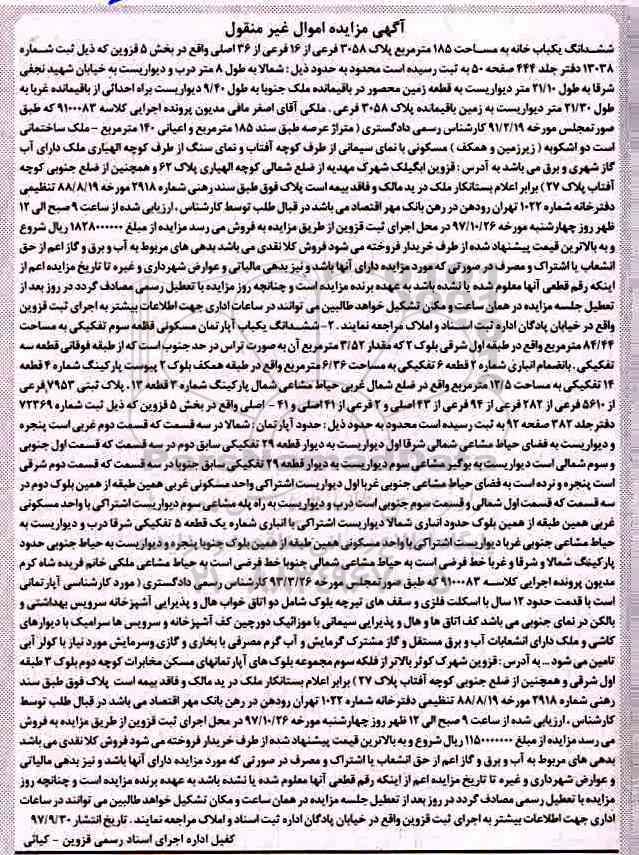 آگهی مزایده اموال غیر منقول
ششدانگ یکباب خانه به مساحت ۱۸۵ مترمربع پلاک ۳۰۵۸ فرعی از ۱۶ فرعی از ۳۶ اصلی واقع در بخش ۵ قزوین که ذیل ثبت شماره
۱۳۰۳۸ دفتر جلد ۴۴۴ صفحه ۵۰ به ثبت رسیده است محدود به حدود ذیل : شمالا به طول ۸ متر درب و دیواریست به خیابان شهید نجفی
شرقا به طول ۲۱/۱۰ متر دیواریست به قطعه زمین محصور در باقیمانده ملک جنوبا به طول ۹/۴۰ دیواریست براه احداثی از باقیمانده غربا به
طول ۲۱/۳۰ متر دیواریست به زمین باقیمانده پلاک ۳۰۵۸ فرعی . ملکی آقای اصغر مافی مدیون پرونده اجرایی کلاسه ۹۱۰۰۰۸۳ که طبق
صورتمجلس مورخه ۹۱/۲/۱۹ کارشناس رسمی دادگستری ( متراژ عرصه طبق سند ۱۸۵ مترمربع و اعیانی ۱۴۰ مترمربع – ملک ساختمانی
است دو اشکوبه ( زیرزمین و همکف ) مسکونی با نمای سیمانی از طرف کوچه آفتاب و نمای سنگ از طرف کوچه الهیاری ملک دارای آب
گاز شهری و برق می باشد به آدرس : قزوین ابگیلک شهرک مهدیه از ضلع شمالی کوچه الهیاری پلاک ۶۲ و همچنین از ضلع جنوبی کوچه
آفتاب پلاک ۲۷ ) برابر اعلام بستانکار ملک در ید مالک و فاقد بیمه است پلاک فوق طبق سند رهنی شماره ۲۹۱۸ مورخه ۸۸/۸/۱۹ تنظیمی
دفترخانه شماره ۱۰۲۲ تهران رودهن در رهن بانک مهر اقتصاد می باشد در قبال طلب توسط کارشناس ، ارزیابی شده از ساعت ۹ صبح الی ۱۲
ظهر روز چهارشنبه مورخه ۹۷/۱۰/۲۶ در محل اجرای ثبت قزوین از طریق مزایده به فروش می رسد مزایده از مبلغ ۱۸۲۸۰۰۰۰۰۰ ریال شروع
و به بالاترین قیمت پیشنهاد شده از طرف خریدار فروخته می شود فروش کلا نقدی می باشد بدهی های مربوط به آب و برق و گاز اعم از حق
انشعاب یا اشتراک و مصرف در صورتی که مورد مزایده دارای آنها باشد و نیز بدهی مالیاتی و عوارض شهرداری و غیره تا تاریخ مزایده اعم از
اینکه رقم قطعی آنها معلوم شده یا نشده باشد به عهده برنده مزایده است و چنانچه روز مزایده با تعطیل رسمی مصادف گردد در روز بعد از
تعطیل جلسه مزایده در همان ساعت و مکان تشکیل خواهد طالبین می توانند در ساعات اداری جهت اطلاعات بیشتر به اجرای ثبت قزوین
واقع در خیابان پادگان اداره ثبت اسناد و املاک مراجعه نمایند . ۲ – ششدانگ یکباب آپارتمان مسکونی قطعه سوم تفکیکی به مساحت
۸۴/۴۴ مترمربع واقع در طبقه اول شرقی بلوک ۲ که مقدار ۳/۵۲ مترمربع آن به صورت تراس در حد جنوب است که از طبقه فوقانی قطعه سه
تفکیکی . بانضمام انباری شماره ۲ قطعه ۶ تفکیکی به مساحت ۶/۳۶ مترمربع واقع در طبقه همکف بلوک ۲ پیوست پارکینگ شماره ۴ قطعه
۱۴ تفکیکی به مساحت ۱۲/۵ مترمربع واقع در ضلع شمال غربی حیاط مشاعی شمال پارکینگ شماره ۳ قطعه ۱۳ . پلاک ثبتی ۷۹۵۳ فرعی
از ۵۶۱۰ فرعی از ۲۸۲ فرعی از ۹۴ فرعی از ۴۳ اصلی و ۲ فرعی از ۴۱ اصلی و ۴۱ – اصلی واقع در بخش ۵ قزوین که ذیل ثبت شماره ۷۲۳۶۹
دفتر جلد ۳۸۲ صفحه ۹۲ به ثبت رسیده است محدود به حدود ذیل : حدود آپارتمان : شمالا در سه قسمت که قسمت دوم غربی است پنجره
و دیواریست به فضای حیاط مشاعی شمالی شرقا اول دیواریست به دیوار قطعه ۲۹ تفکیکی سابق دوم در سه قسمت که قسمت اول جنوبی
و سوم شمالی است دیواریست به نوگیر مشاعی سوم دیواریست به دیوار قطعه ۲۹ تفکیکی سابق جنوبا در سه قسمت که قسمت دوم شرقی
است پنجره و نرده است به فضای حیاط مشاعی جنوبی غربا اول دیواریست اشتراکی واحد مسکونی غربی همین طبقه از همین بلوک دوم در
سه قسمت که قسمت اول شمالی و قسمت سوم جنوبی است درب و دیواریست به راه پله مشاعی سوم دیواریست اشتراکی با واحد مسکونی
غربی همین طبقه از همین بلوک حدود انباری شمالا دیواریست اشتراکی با انباری شماره یک قطعه ۵ تفکیکی شرقا درب و دیواریست به
حیاط مشاعی جنوبی غربا دیواریست اشتراکی با واحد مسکونی همین طبقه از همین بلوک جنوبا پنجره و دیواریست به حیاط جنوبی حدود
پارکینگ شمالا و شرقا و غربا خط فرضی است به حیاط مشاعی شمالی جنوبا خط فرضی است به حیاط مشاعی ملکی خانم فریده شاه کرم
مدیون پرونده اجرایی کلاسه ۹۱۰۰۰۸۳ که طبق صورتمجلس مورخه ۹۳/۳/۲۶ کارشناس رسمی دادگستری ( مورد کارشناسی آپارتمانی
است با قدمت حدود ۱۲ سال با اسکلت فلزی و سقف های تیرچه بلوک شامل دو اتاق خواب هال و پذیرایی آشپزخانه سرویس بهداشتی و
بالکن در نمای جنوبی می باشد کف اتاق ها و هال و پذیرایی سیمانی با موزائیک دورچین کف آشپزخانه و سرویس ها سرامیک با دیوارهای
کاشی و ملک دارای انشعابات آب و برق مستقل و گاز مشترک گرمایش و آب گرم مصرفی با بخاری و گازی وسرمایش مورد نیاز با کولر آبی
تامین می شود ... به آدرس : قزوین شهرک کوثر بالاتر از فلکه سوم مجموعه بلوک های آپارتمانهای مسکن مخابرات کوچه دوم بلوک ۳ طبقه
اول شرقی و همچنین از ضلع جنوبی کوچه آفتاب پلاک ۲۷ ) برابر اعلام بستانکار ملک در ید مالک و فاقد بیمه است پلاک فوق طبق سند
رهنی شماره ۲۹۱۸ مورخه ۸۸/۸/۱۹ تنظیمی دفترخانه شماره ۱۰۲۲ تهران رودهن در رهن بانک مهر اقتصاد می باشد در قبال طلب توسط
کارشناس ، ارزیابی شده از ساعت ۹ صبح الی ۱۲ ظهر روز چهارشنبه مورخه ۹۷/۱۰/۲۶ در محل اجرای ثبت قزوین از طریق مزایده به فروش
می رسد مزایده از مبلغ ۱۱۵۰۰۰۰۰۰۰ ریال شروع و به بالاترین قیمت پیشنهاد شده از طرف خریدار فروخته می شود فروش کلا نقدی می باشد
بدهی های مربوط به آب و برق و گاز اعم از حق انشعاب یا اشتراک و مصرف در صورتی که مورد مزایده دارای آنها باشد و نیز بدهی مالیاتی
و عوارض شهرداری و غیره تا تاریخ مزایده اعم از اینکه رقم قطعی آنها معلوم شده یا نشده باشد به عهده برنده مزایده است و چنانچه روز
مزایده با تعطیل رسمی مصادف گردد در روز بعد از تعطیل جلسه مزایده در همان ساعت و مکان تشکیل خواهد طالبین می توانند در ساعات
اداری جهت اطلاعات بیشتر به اجرای ثبت قزوین واقع در خیابان پادگان اداره ثبت اسناد و املاک مراجعه نمایند . تاریخ انتشار ۹۷/۹/۳۰
کفیل اداره اجرای اسناد رسمی قزوین – کیائی